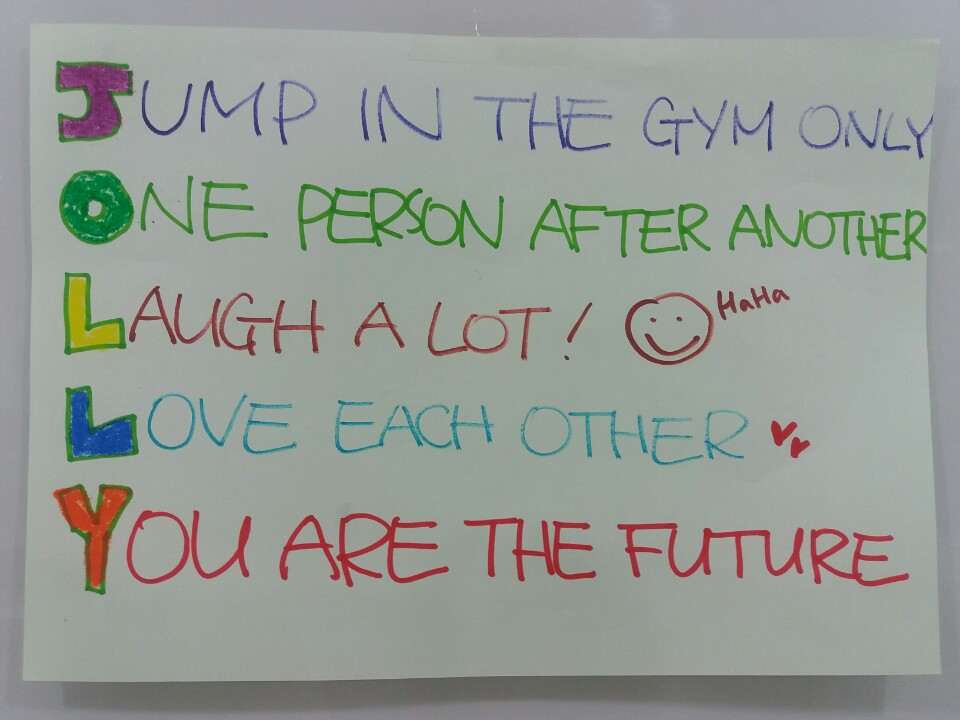 JUMP IN THE GYM ONLY
ONE PERSON AFTER ANOTHER
LAUGH A LOT! HaHa
LOVE EACH OTHER
YOU ARE THE FUTURE